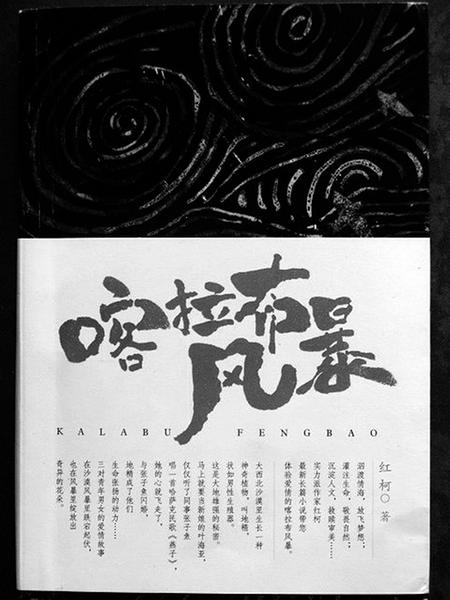 喀拉布风暴
KALABU FENGBAO
红柯◎著
泅渡情海，放飞梦想，
灌注生命，敬畏自然，
沉淀人文，救赎审美……
实力派作家红柯
最新长篇小说带您
体验爱情的喀拉布风暴。
大西北沙漠里生长一种
神奇植物，叫地精，
状如男性生殖器。
这是大地雄强的秘密。
马上就要当新娘的叶海亚，
仅仅听了同事张子鱼
唱一首哈萨克民歌《燕子》，
她的心就飞走了，
与张子鱼闪婚，
地精成了他们
生命张扬的动力……
三对青年男女的爱情故事
在沙漠风暴里跌宕起伏，
也在风暴里绽放出
奇异的花朵。